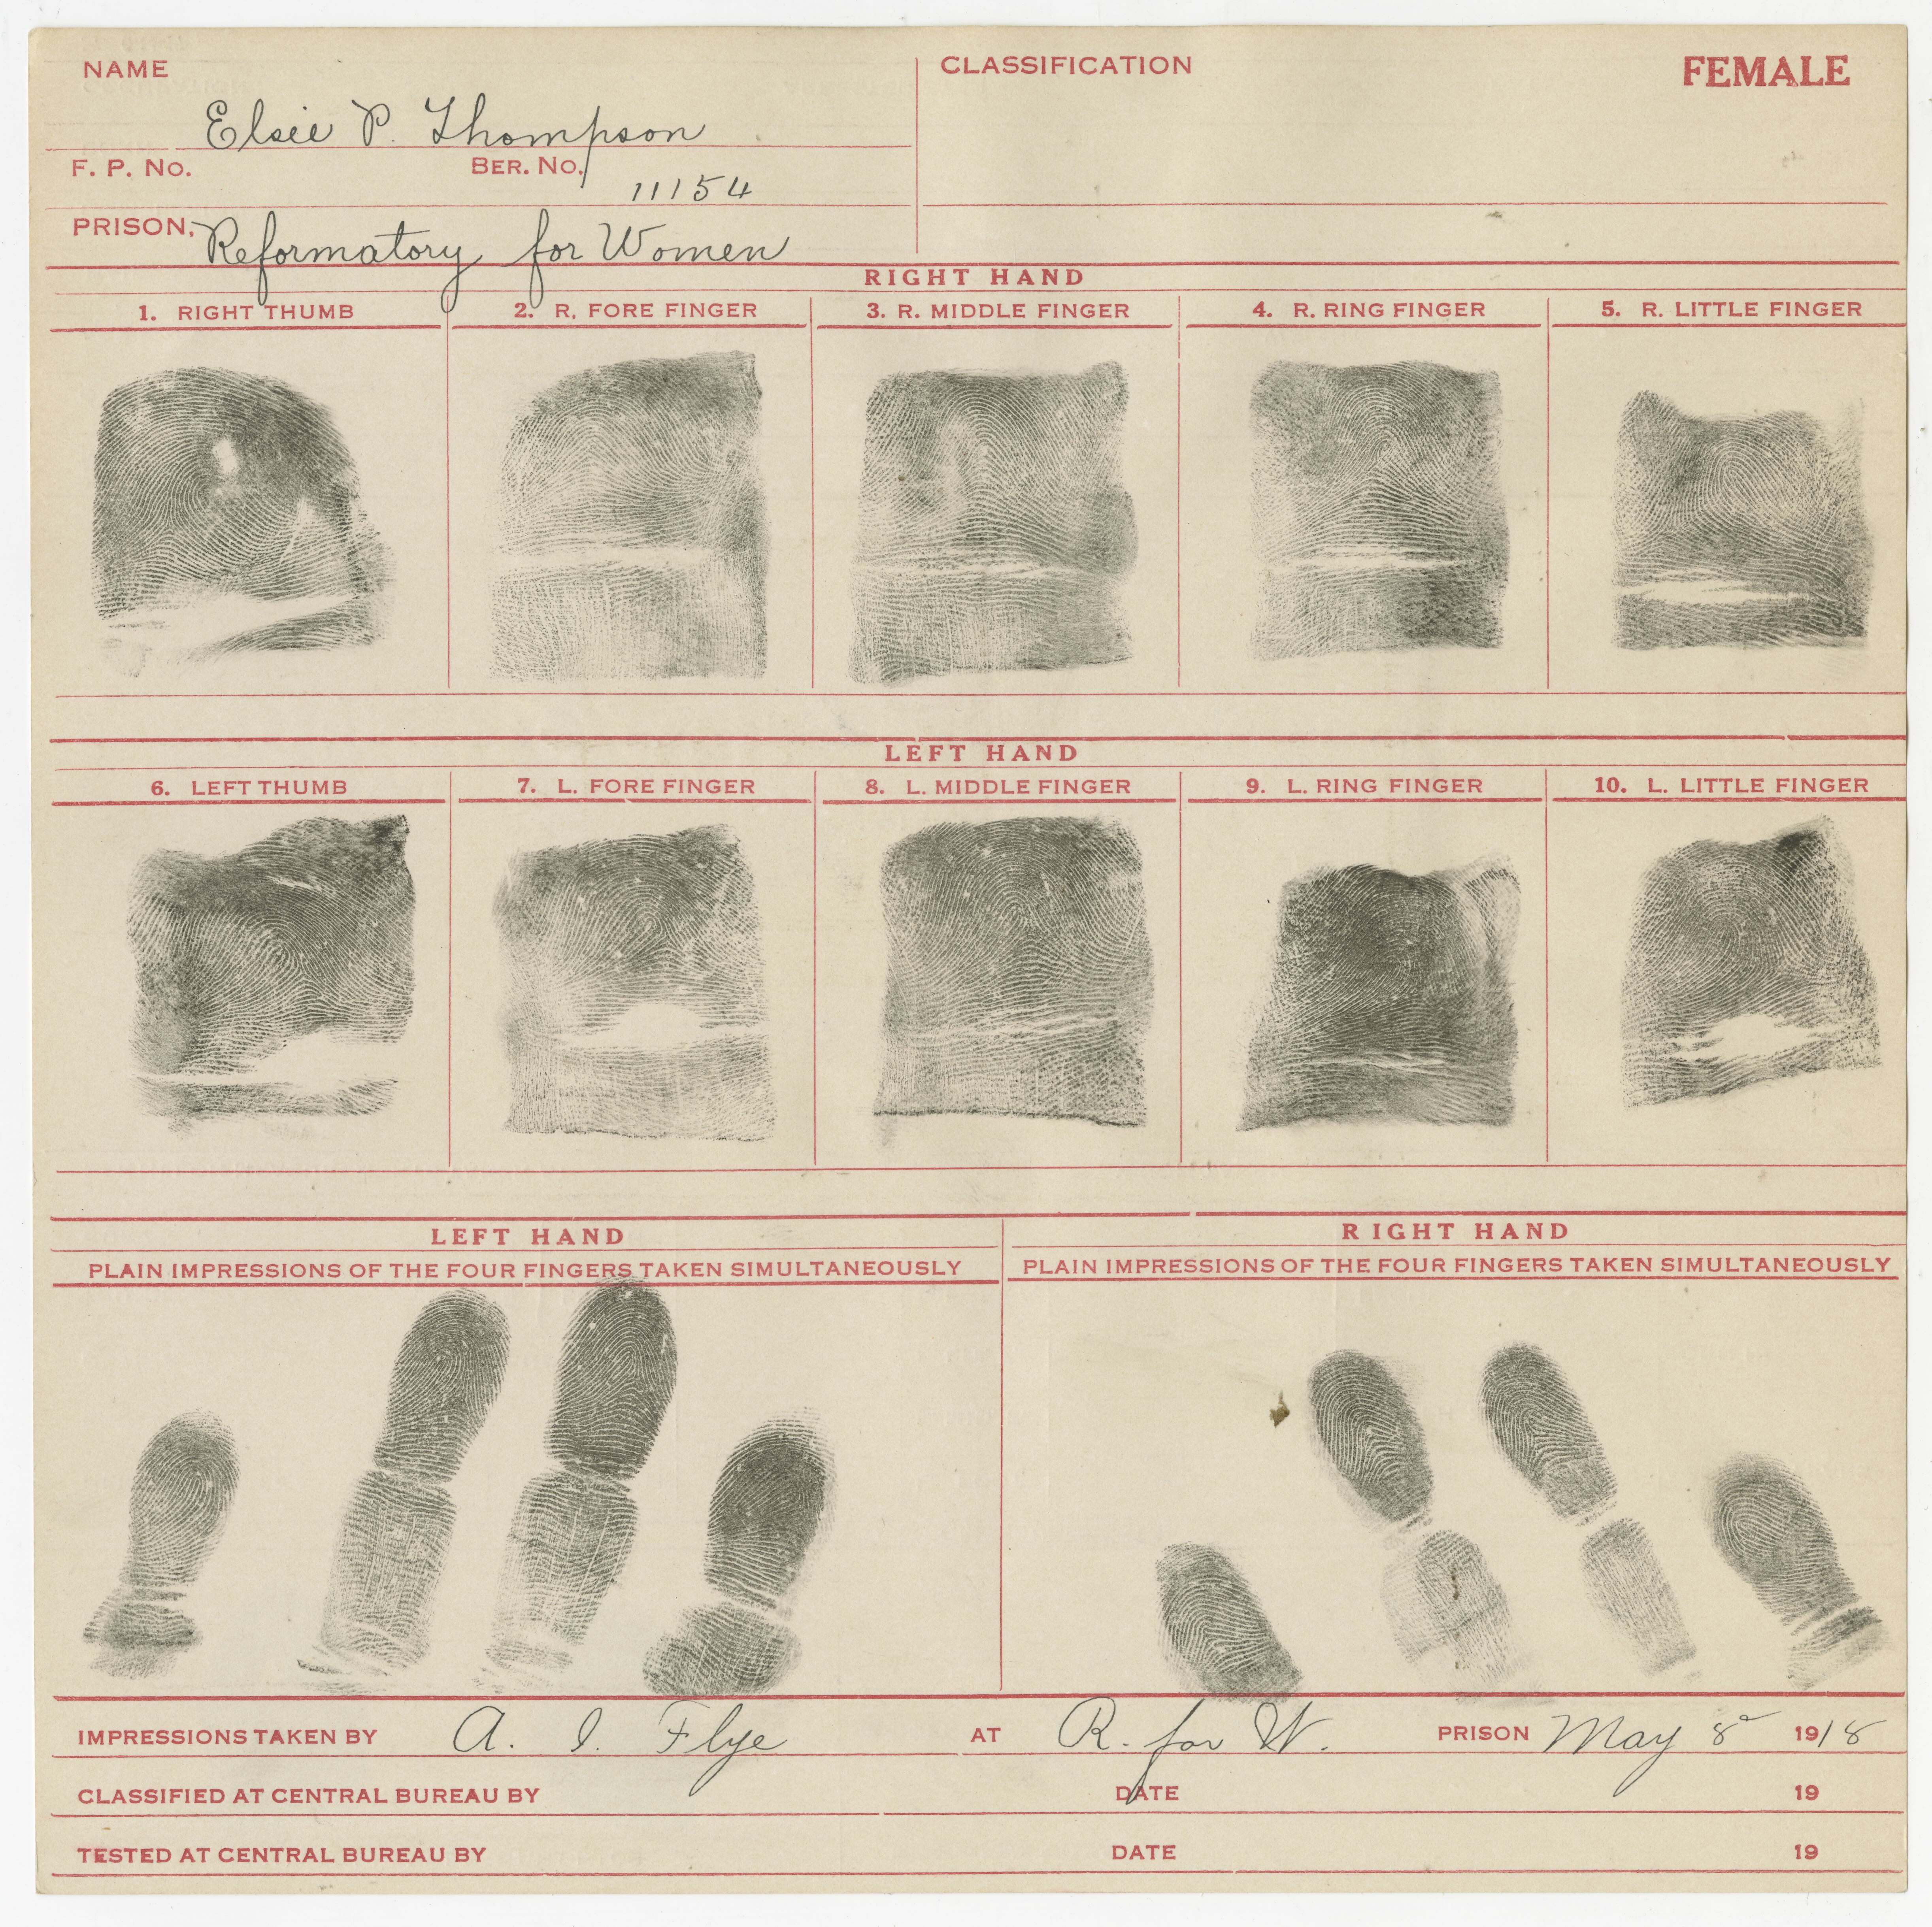 NAME
CLASSIFICATION
FEMALE
Elsie P. Thompson
F. P. No.
BER. No.
11154
PRISON, Reformatory for Women
RIGHT HAND
1. RIGHT THUMB
2. R. FORE FINGER
3. R. MIDDLE FINGER
4. R. RING FINGER
5. R. LITTLE FINGER
LEFT HAND
6. LEFT THUMB
7. L. FORE FINGER
8. L. MIDDLE FINGER
9. L. RING FINGER
10. L. LITTLE FINGER
LEFT HAND
PLAIN IMPRESSIONS OF THE FOUR FINGERS TAKEN SIMULTANEOUSLY
RIGHT HAND
PLAIN IMPRESSIONS OF THE FOUR FINGERS TAKEN SIMULTANEOUSLY
IMPRESSIONS TAKEN BY A. I. Flye AT R. for W. PRISON May 8 1918
CLASSIFIED AT CENTRAL BUREAU BY DATE 19
TESTED AT CENTRAL BUREAU BY DATE 19